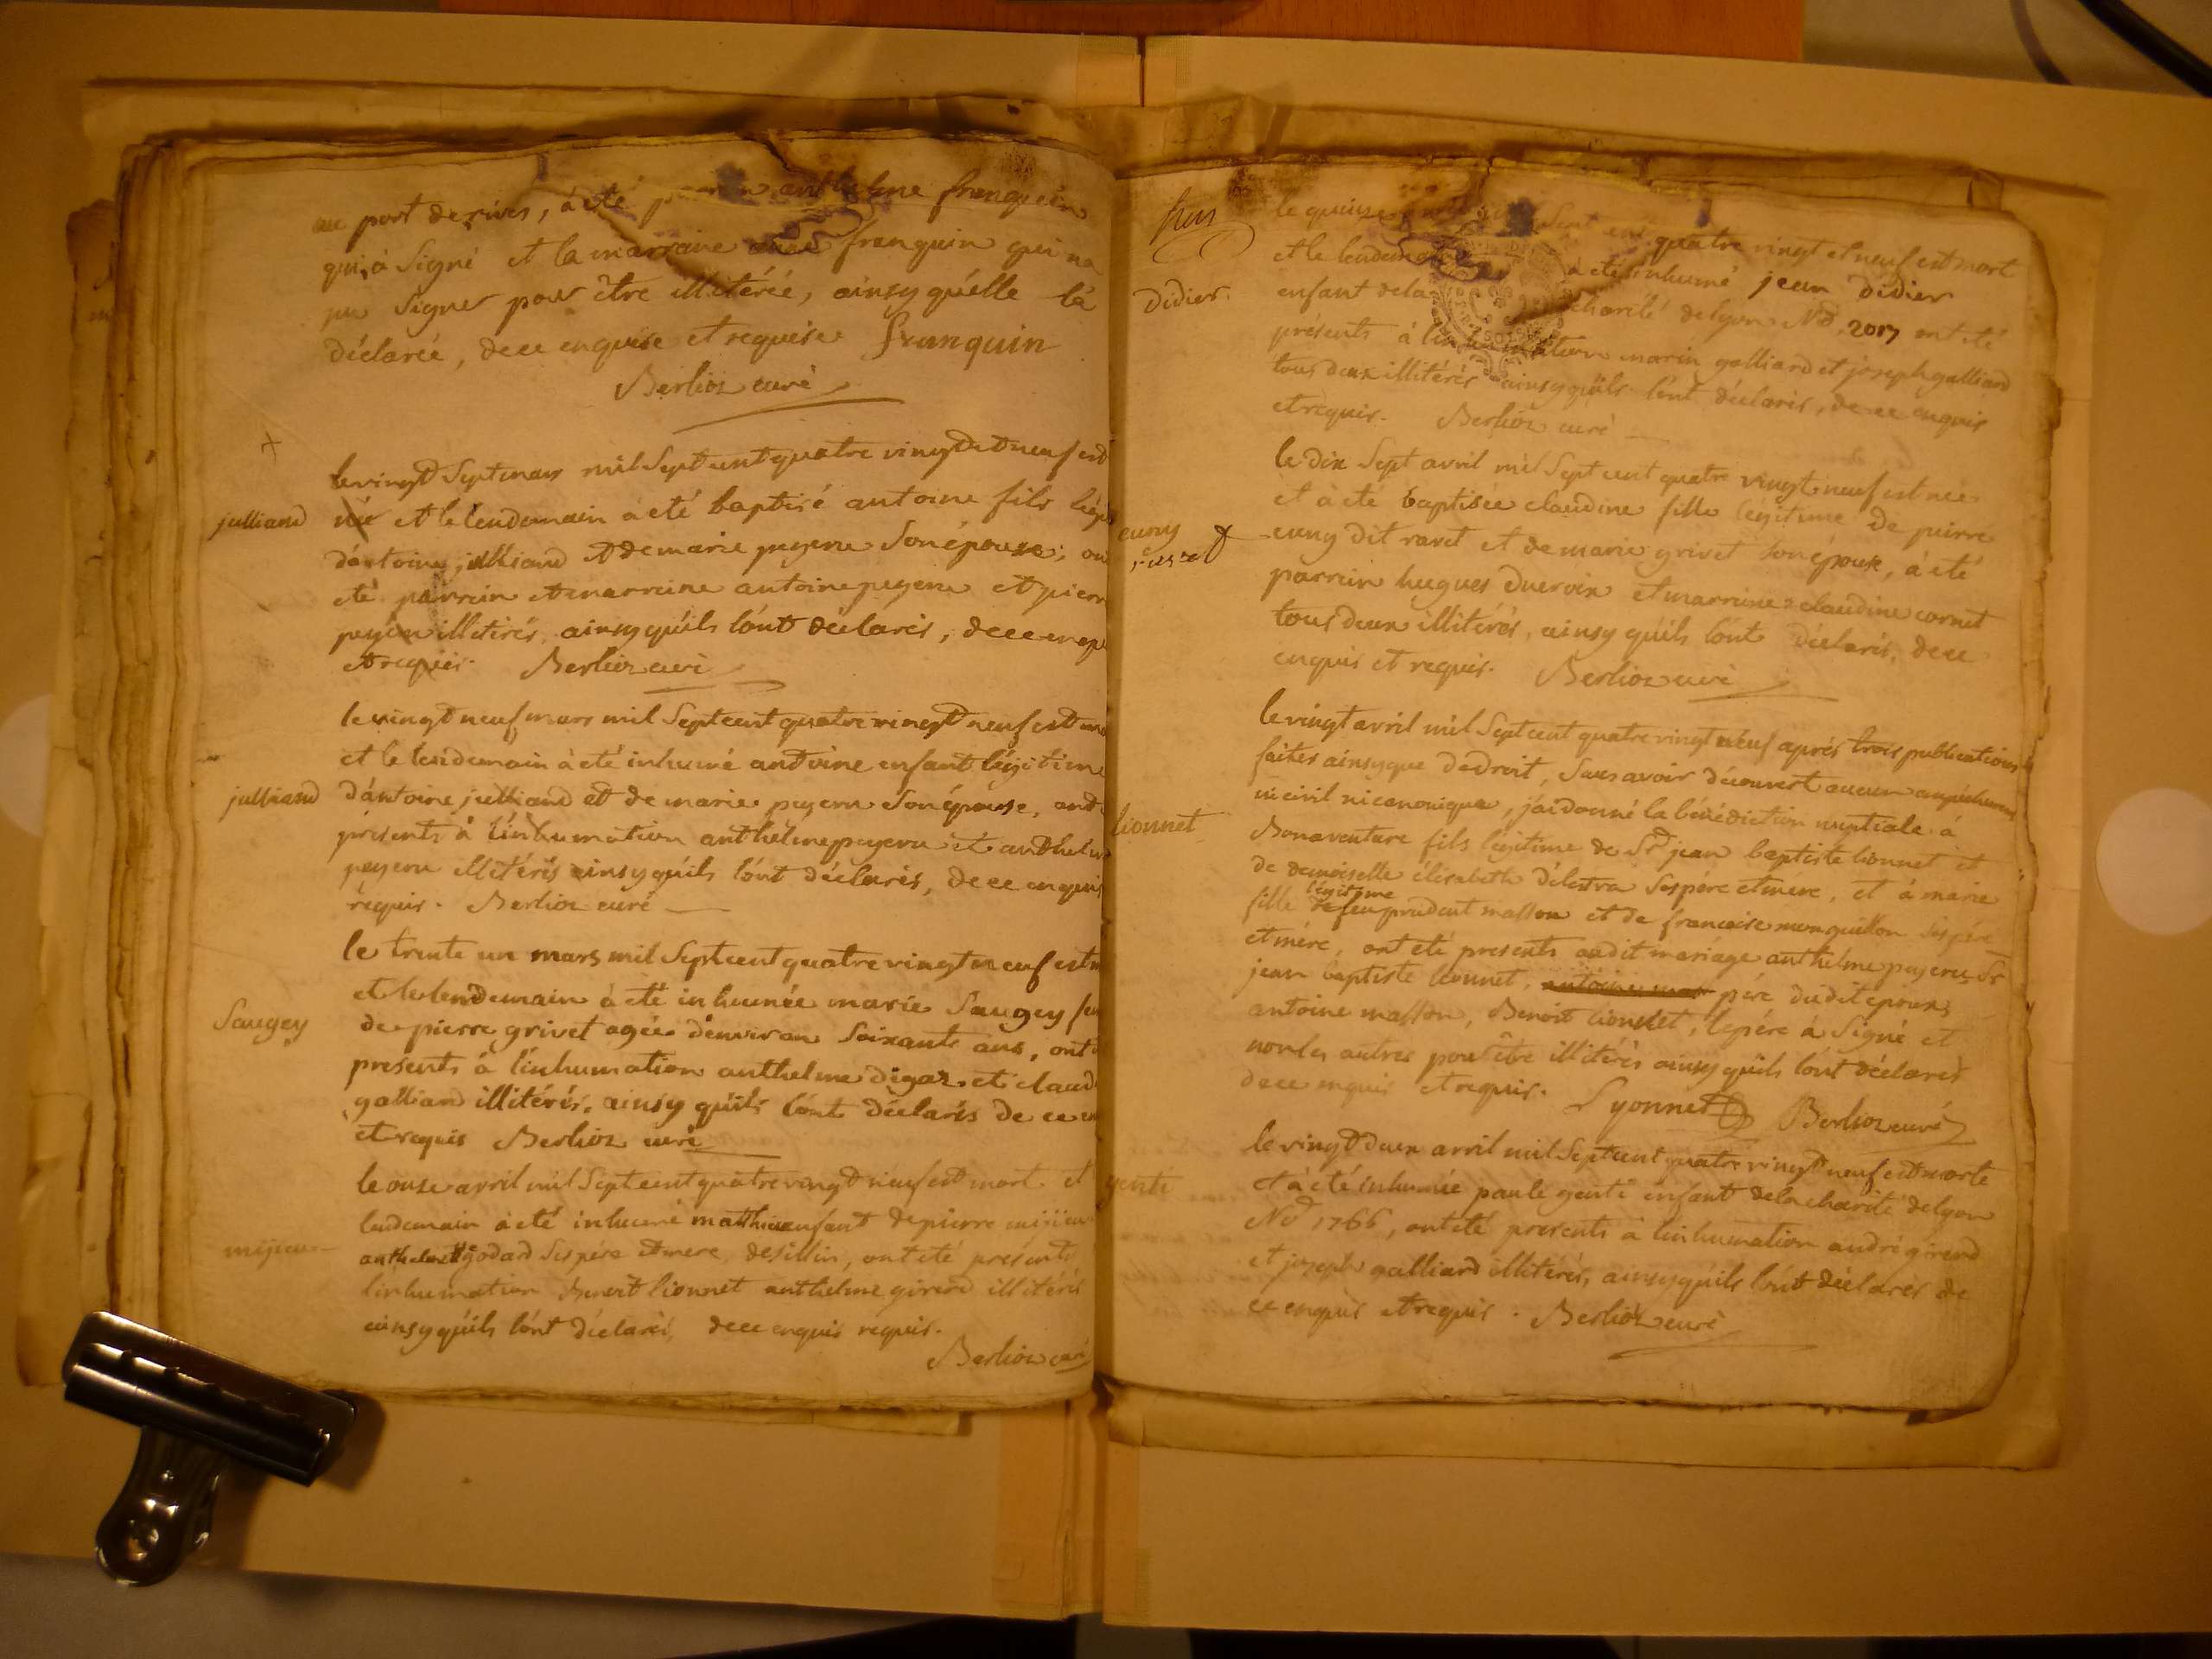 au port de rives, à été parrain anthelme franquin
qui à Signé et la marraine franquin qui na
pu Signer pour être illitérée, ainsy quélle lá
déclarée, de ce enquise et requise franquin
Berlioz curé
julliand
le vingt Sept mars mil Sept cent quatre vingt et neuf est
né et le lendemain à été baptisé antoine fils légi
dántoine julliand et de marie peyeru Son épouse; on
eté parrain et marraine antoine peyeru et pierr
peyeru illitérés, ainsy quíls lónt déclarés, de ce enqu
et requis. Berlioz curé
julliand
le vingt neuf mars mil Sept cent quatre vingt neuf est
et le lendemain à été inhumé antoine enfant légitime
dántoine julliand et de marie peyeru Son épouse, ont
présents à línhumation anthelme peyeru et anthelm
peyeru illitérés ainsy quíls lónt déclarés, de ce enquis
réquis. Berlioz curé
Saugey
le trente un mars mil Sept cent quatre vingt neuf est
et le lendemain à été inhumée marie Saugey
de pierre grivet agée dénviron Soixante ans, ont
presents à línhumation anthelme digaz et claud
galliand illitérés, ainsy quíls lónt déclarés de ce
et requis Berlioz curé
mijieu
le onze avril mil Sept cent quatre vingt neuf est mort et
lendemain à été inhumé mathieu enfant de pierre mijieu
anthelmette godard Ses père et mere desillin, ont été présents
línhumation Benoit lionnet anthelme girerd illitérés
ainsy quíls lónt déclarés, de ce enquis requis.
Berlioz curé
Didier.
le quinze Sept cent quatre vingt et neuf est mort
et le lendemain à eté inhumé jean didier
enfant de la charité de lyon Nd. 2017 ont été
présents à línhumation marin galliard et joseph galliard
tous deux illitérés ainsy quíls lónt déclarés, de ce enquis
et requis. Berlioz curé
cuny
ravet
le dix Sept avril mil Sept cent quatre vingt neuf est née
et à été baptisée claudine fille légitime de pierre
cuny dit ravet et de marie grivet Son épouse, à été
parrain hugues ducroix et marraine claudine cornet
tous deux illitérés, ainsy quíls lónt déclarés, de ce
enquis et requis. Berlioz curé
lionnet
le vingt avril mil Sept cent quatre vingt neuf aprés trois publications
faites ainsy que de droit, Sans avoir découvert aucun empéchement
ni civil ni canonique, jái donné la bénédiction nuptiale à
Bonaventure fils légitime de Sr. jean baptiste lionnet et
de demoiselle élisabeth délestra Ses père et mére, et à marie
fille légitime de feu prudent masson et de francoise monguillon Ses pére
et mére, ont eté presents audit mariage anthelme peyeru, Sr.
jean baptiste lionnet, père dudit époux,
antoine masson, Benoit lionnet, le pére à Signé et
non les autres pour être illitérés ainsy quíls lónt déclarés
de ce enquis et requis. Lyonnet Berlioz curé
genti
le vingt deux avril mil Sept cent quatre vingt neuf est morte
et à été inhumée paule genti enfant de la charité de lyon
Nd 1766, ont été presents à línhumation andré girerd
et joseph galliard illitérés, ainsy quíls lónt déclarés de
ce enquis et requis. Berlioz curé